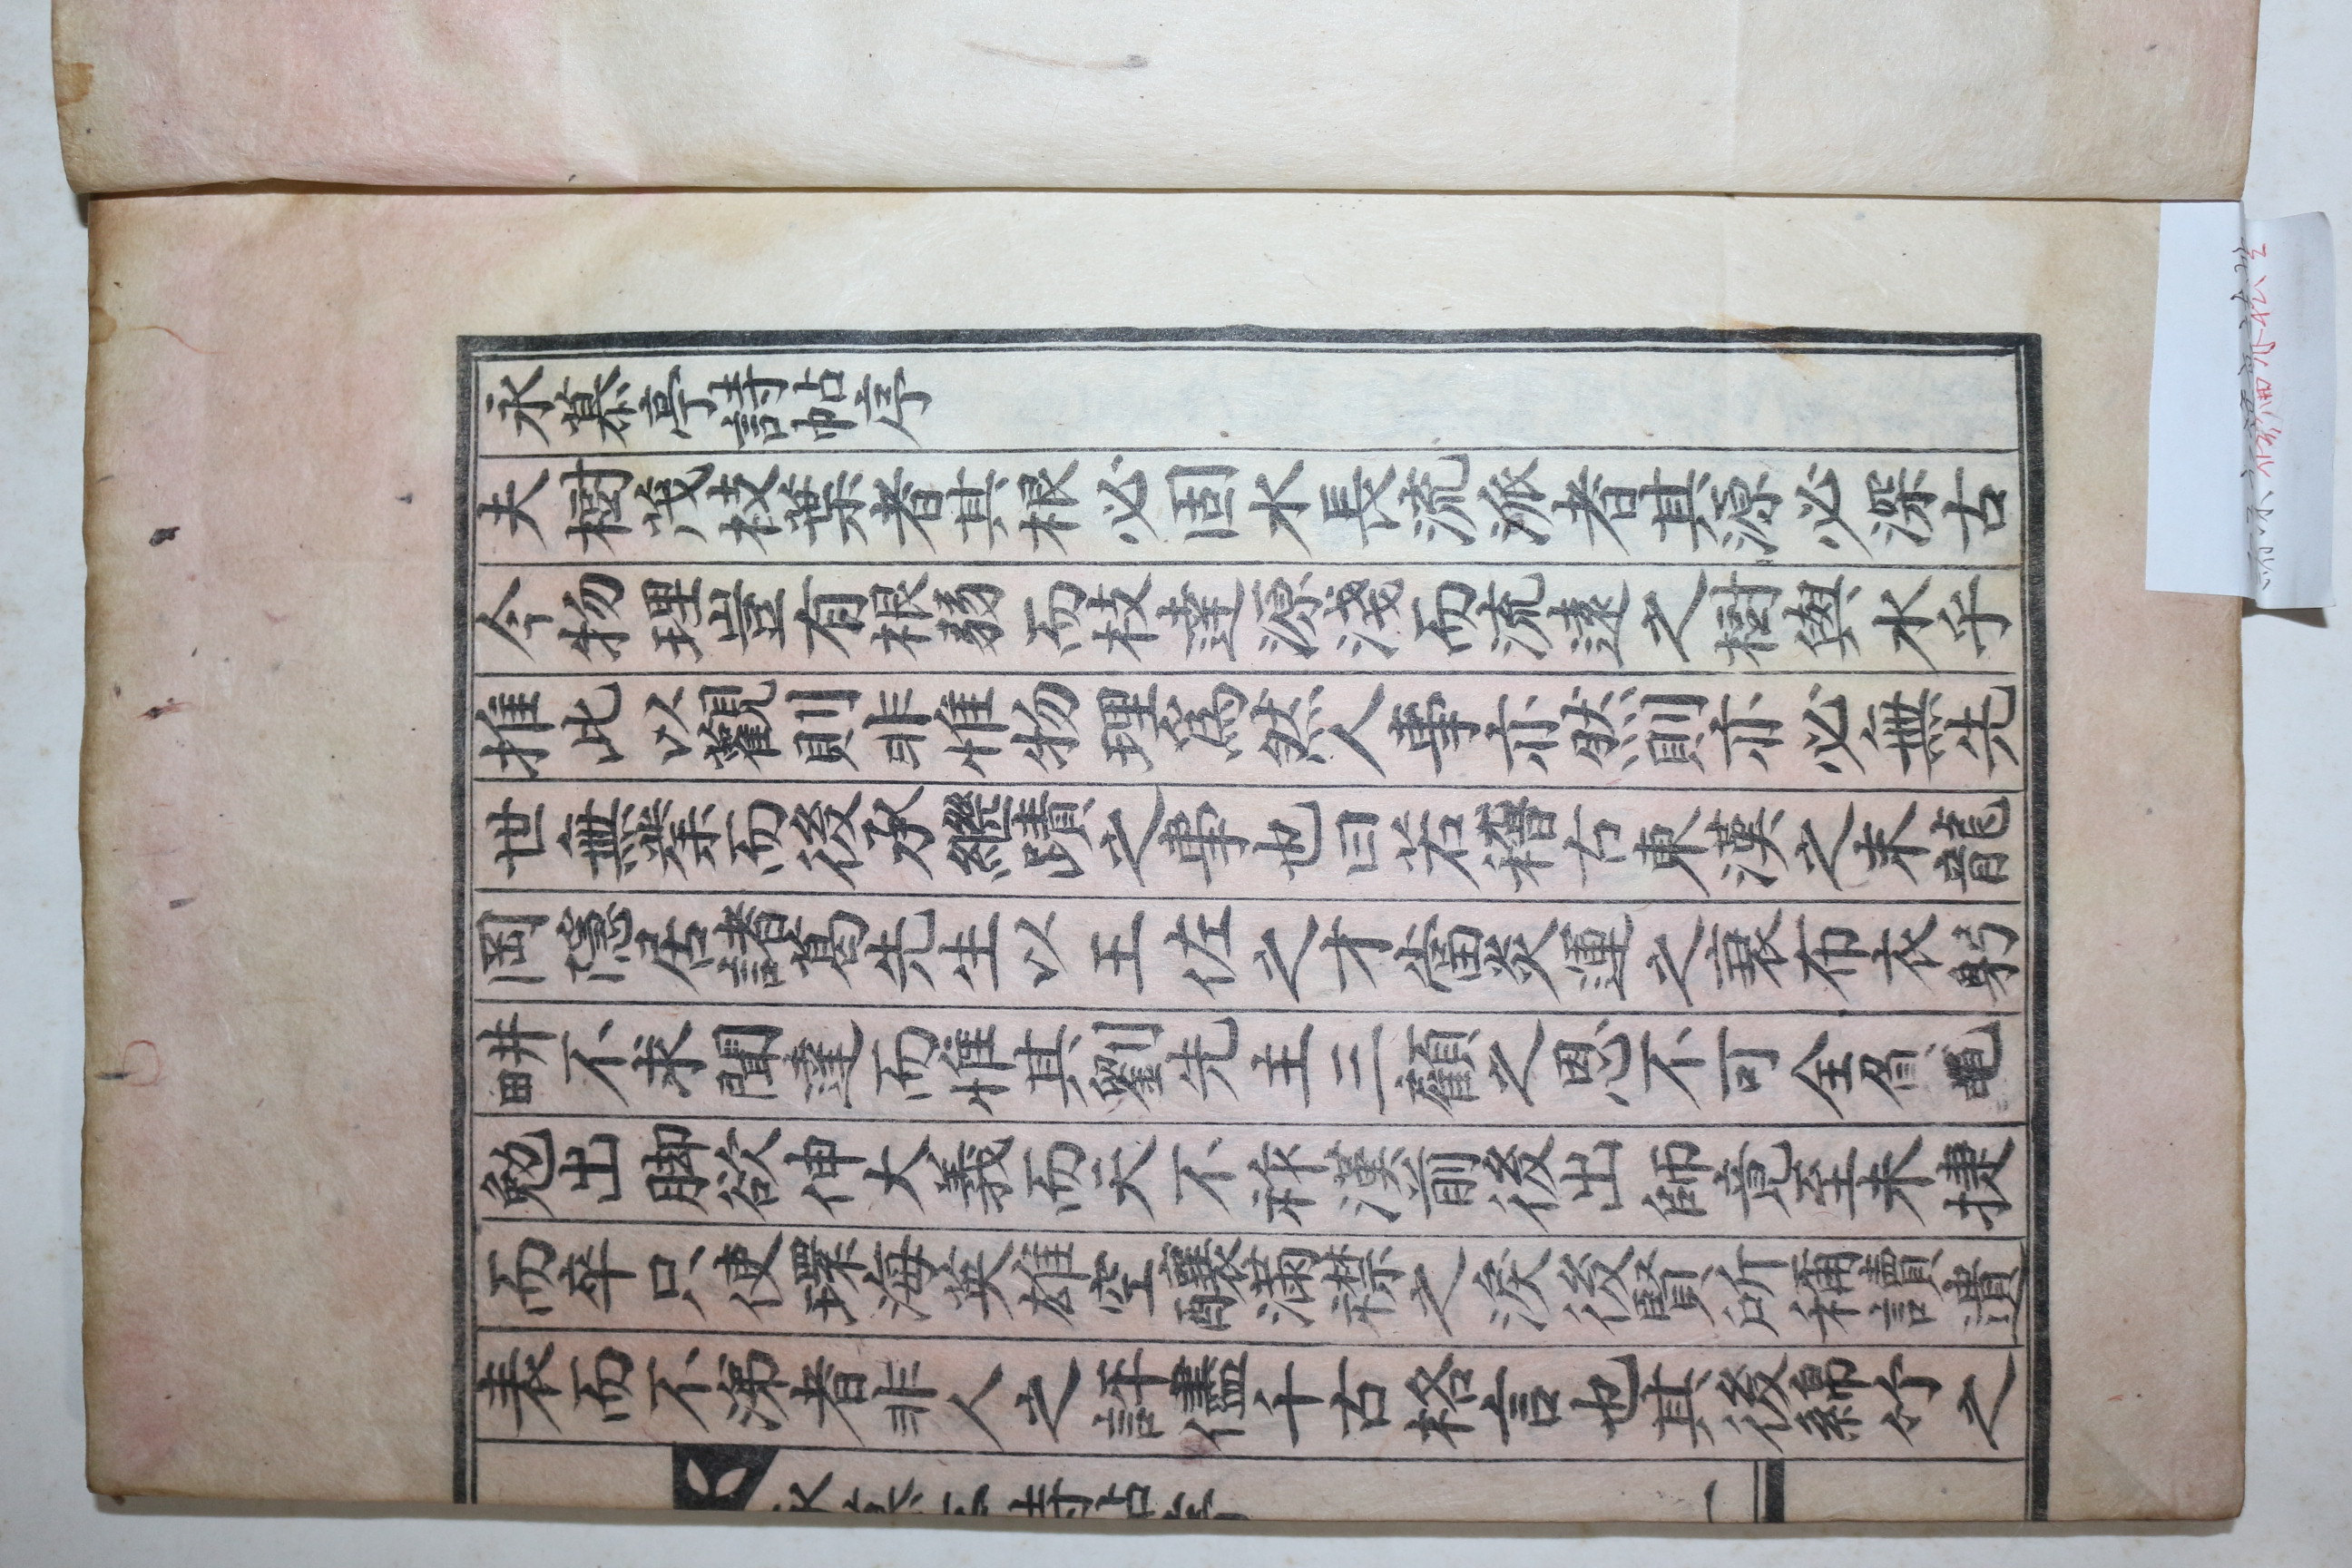 永慕亭詩帖序
夫樹茂枝葉者其根必固水長流派者其源必深古
今物理豈有根弱而枝達源淺而流遠之樹與水乎
推此以觀則非惟物理爲然人事亦然則亦必無先
世無業而後承繼續之事也曰若稽古東漢之末龍
岡隱居諸葛先生以王佐之才當炎運之衰布衣躬
畊不求聞達而惟其劉先主三顧之恩不可全負黽
勉出脚欲伸大義而天不祚漢前後出師竟至未捷
而卒只使環海英雄空釀滿襟之淚後賢所稱讀遺
表而不涕者非人之評儘千古格言也其後歸竹之
永慕亭詩帖序 一